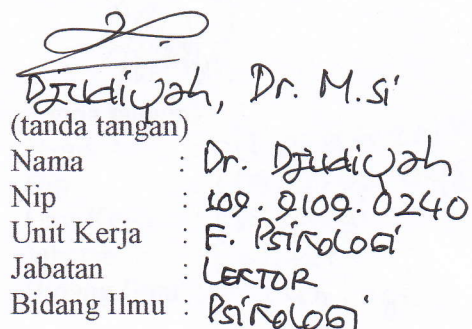 Djudiyah, Dr. M.si
(tanda tangan)
Nama : Dr. Djudiyah
Nip : 109.9109.0240
Unit Kerja : F. Psikologi
Jabatan : LEKTOR
Bidang Ilmu : Psikologi